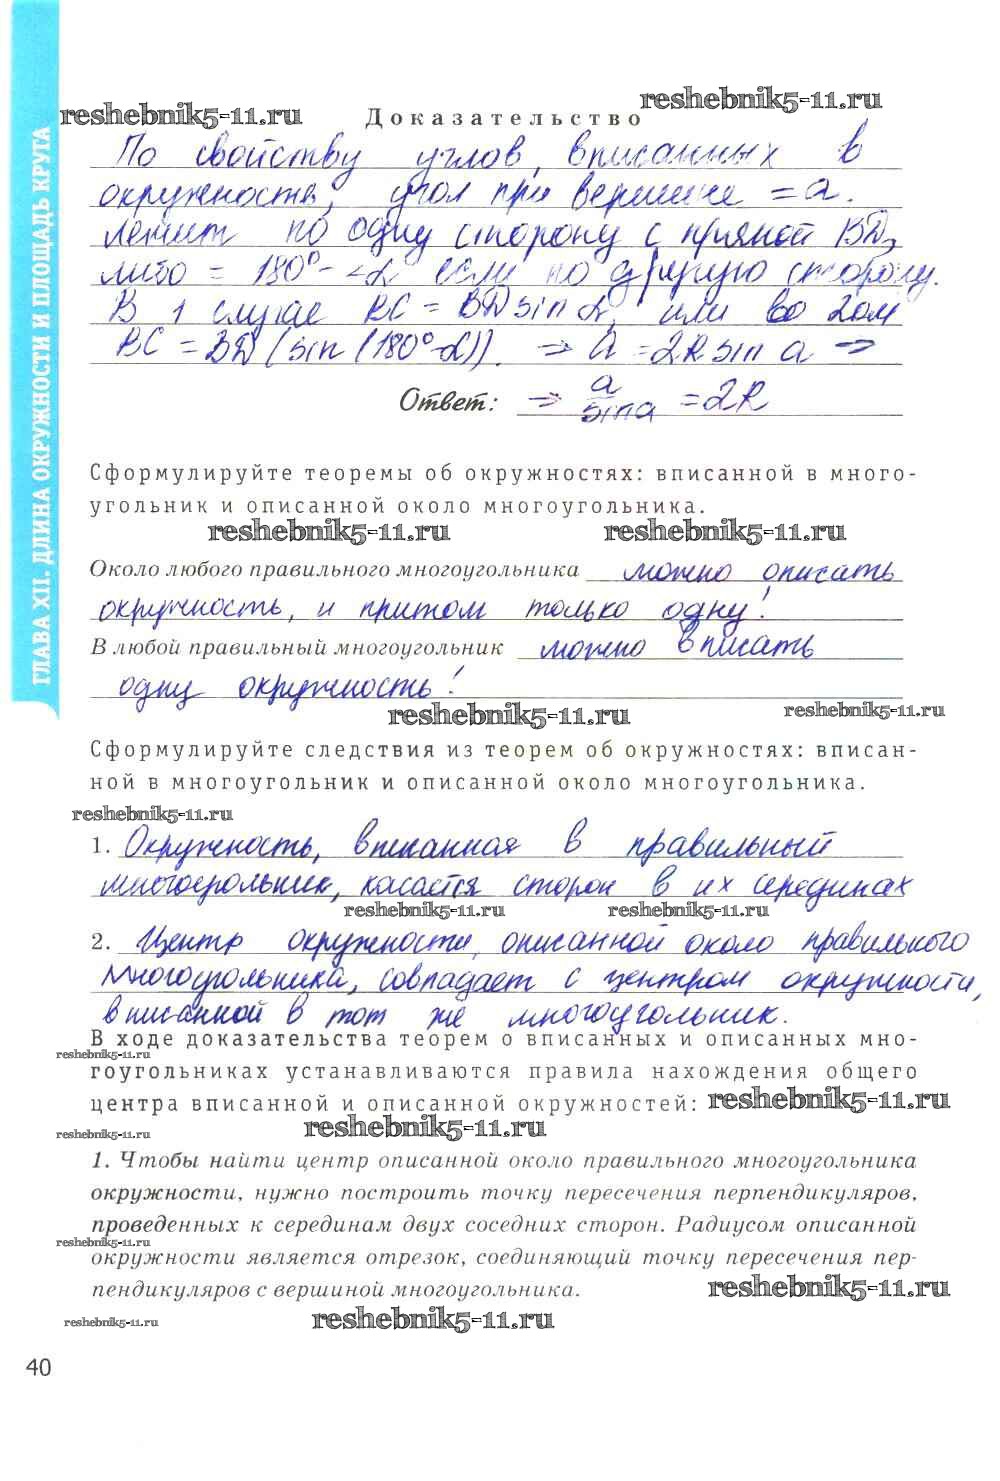 reshebnik5-11.ru
reshebnik5-11.ru
Доказательство
По свойству углов, вписанных в
окружность, угол при вершине = a.
лежит по одну сторону с прямой BD,
либо = 180° - ∠α если по другую сторону.
В 1 случае BC = BD sin α, или во 2ом
BC = BD (sin (180°-α)). => a = 2R sin a =>
Ответ: => a/sin a = 2R
Сформулируйте теоремы об окружностях: вписанной в много-
угольник и описанной около многоугольника.
reshebnik5-11.ru reshebnik5-11.ru
Около любого правильного многоугольника можно описать
окружность, и притом только одну!
В любой правильный многоугольник можно вписать
одну окружность!
reshebnik5-11.ru reshebnik5-11.ru
Сформулируйте следствия из теорем об окружностях: вписан-
ной в многоугольник и описанной около многоугольника.
reshebnik5-11.ru
1. Окружность, вписанная в правильный
многоугольник, касается сторон в их серединах
reshebnik5-11.ru reshebnik5-11.ru
2. Центр окружности, описанной около правильного
многоугольника, совпадает с центром окружности,
вписанной в тот же многоугольник.
В ходе доказательства теорем о вписанных и описанных мно-
reshebnik5-11.ru
гоугольниках устанавливаются правила нахождения общего
центра вписанной и описанной окружностей: reshebnik5-11.ru
reshebnik5-11.ru reshebnik5-11.ru
1. Чтобы найти центр описанной около правильного многоугольника
окружности, нужно построить точку пересечения перпендикуляров,
проведенных к серединам двух соседних сторон. Радиусом описанной
reshebnik5-11.ru
окружности является отрезок, соединяющий точку пересечения пер-
пендикуляров с вершиной многоугольника. reshebnik5-11.ru
reshebnik5-11.ru reshebnik5-11.ru
40
ГЛАВА XII. ДЛИНА ОКРУЖНОСТИ И ПЛОЩАДЬ КРУГА